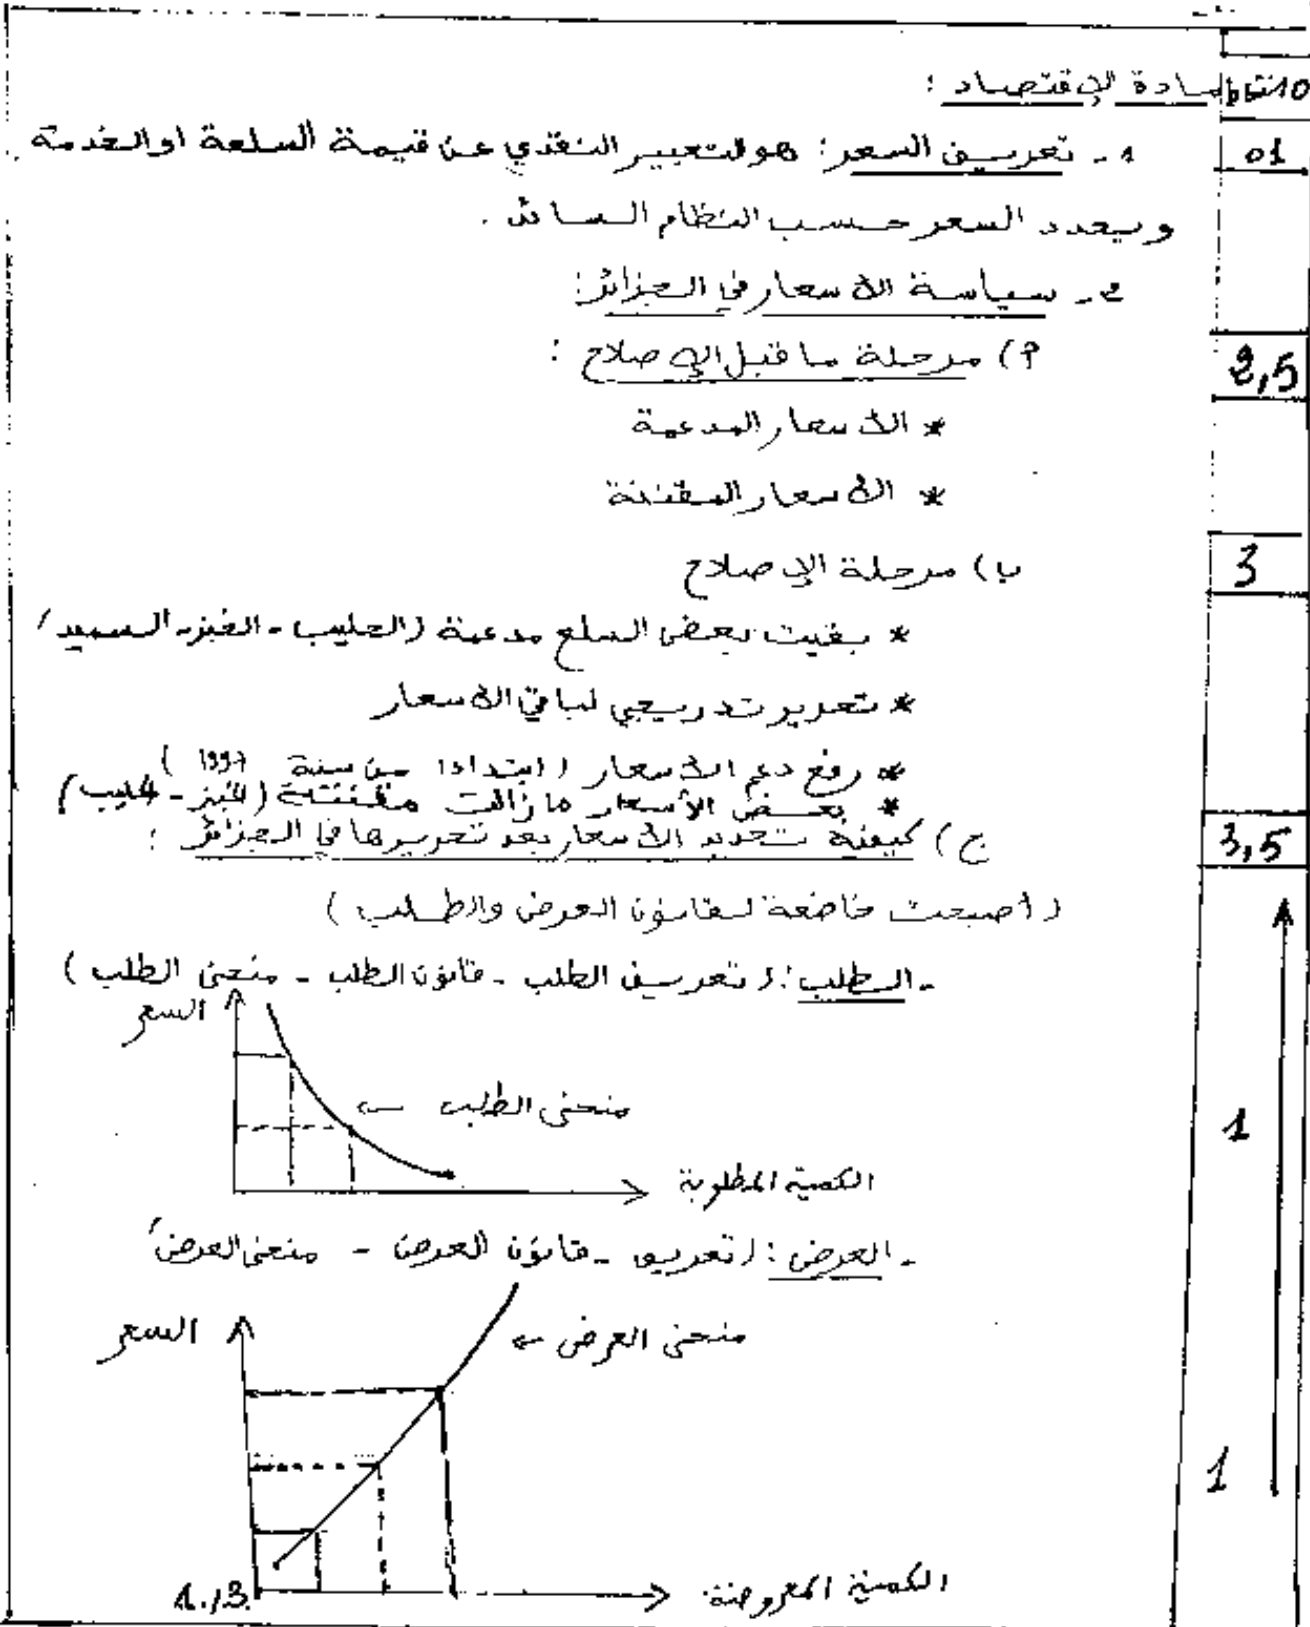 10 نقاط
مادة الإقتصاد :
01
1 - تعريف السعر : هو التعبير النقدي عن قيمة السلعة او الخدمة .
ويحدد السعر حسب النظام السائد .
2 - سياسة الأسعار في الجزائر :
2,5
أ) مرحلة ما قبل الإصلاح :
* الأسعار المدعمة
* الأسعار المقننة
3
ب) مرحلة الإصلاح
* بقيت بعض السلع مدعمة (الحليب - الخبز - السميد)
* تحرير تدريجي لباقي الأسعار
* رفع دعم الأسعار (ابتداءا من سنة 1997)
* بعض الأسعار ما زالت مقننة (الخبز - الحليب)
3,5
ج) كيفية تحديد الأسعار بعد تحريرها في الجزائر :
(أصبحت خاضعة لقانون العرض والطلب)
- الطلب : (تعريف الطلب - قانون الطلب - منحنى الطلب)
السعر
منحنى الطلب
1
الكمية المطلوبة
- العرض : (تعريف - قانون العرض - منحنى العرض)
السعر
منحنى العرض
1
الكمية المعروضة
1./3.